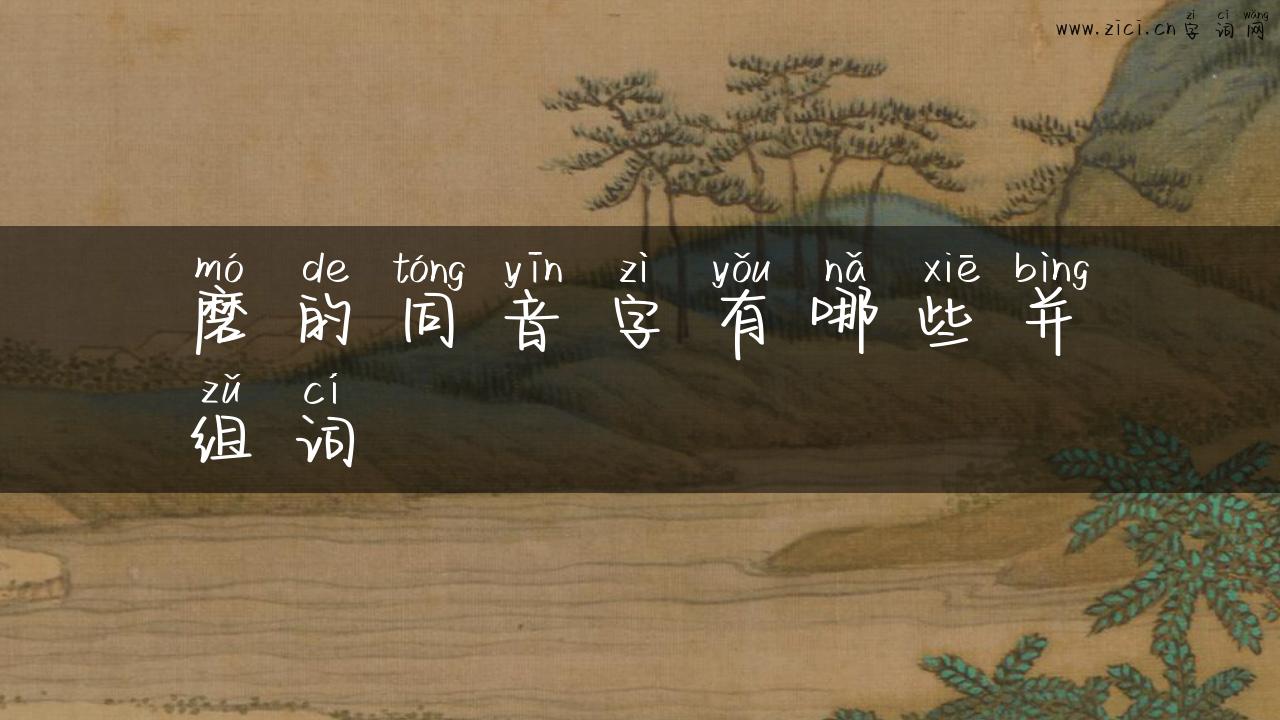 zì cí wǎng
www.zici.cn 字词网
mó de tóng yīn zì yǒu nǎ xiē bìng
磨的同音字有哪些并
zǔ cí
组词